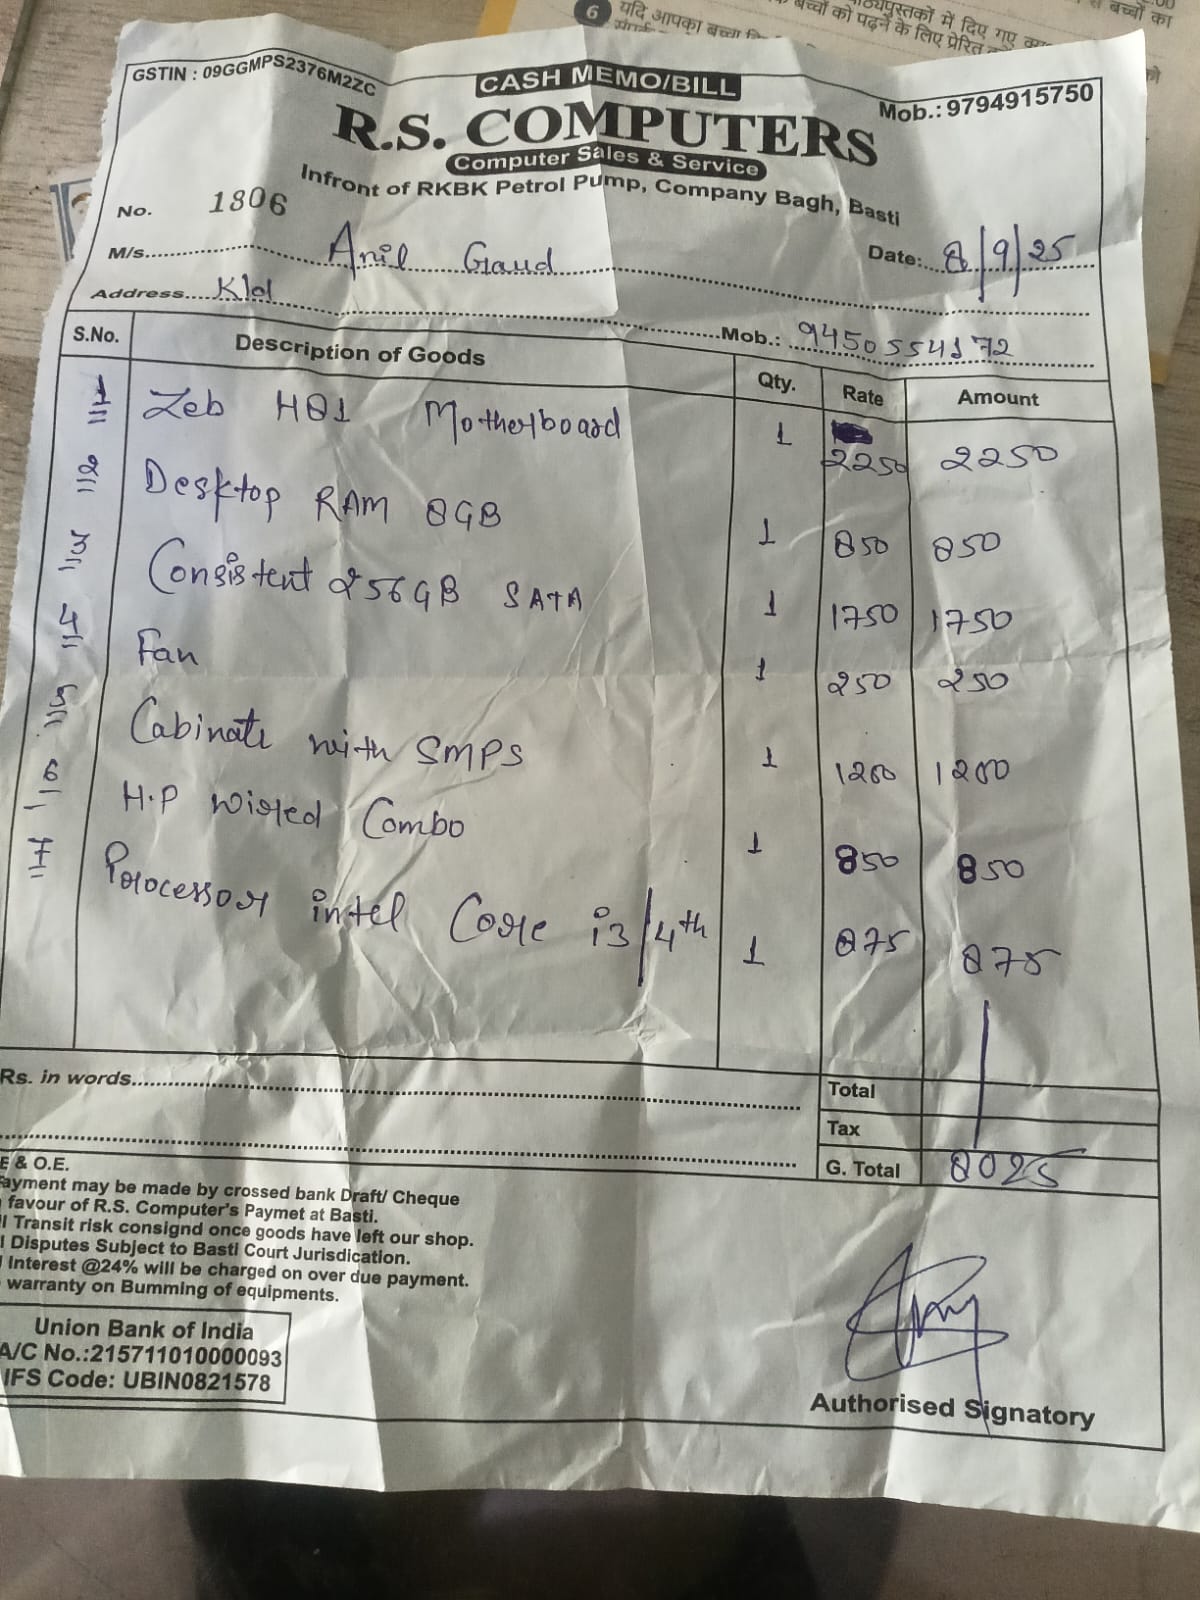 6 यदि आपका बच्चा
बच्चों को पढ़ने के लिए प्रेरित
GSTIN : 09GGMPS2376M2ZC
CASH MEMO/BILL
Mob.: 9794915750
R.S. COMPUTERS
Computer Sales & Service
Infront of RKBK Petrol Pump, Company Bagh, Basti
No. 1806
M/s. Anil Gaud Date: 8/9/25
Address Kld Mob.: 9450554172
S.No. Description of Goods Qty. Rate Amount
1 Zeb H81 Motherboard 1 2250 2250
2 Desktop RAM 8GB 1 850 850
3 Consistent 256GB SATA 1 1750 1750
4 Fan 1 250 250
5 Cabinate with SMPS 1 1200 1200
6 H.P Wired Combo 1 850 850
7 Processor intel Core i3/4th 1 875 875
Rs. in words
Total
Tax
G. Total 8025
E & O.E.
ayment may be made by crossed bank Draft/ Cheque
favour of R.S. Computer's Paymet at Basti.
ll Transit risk consignd once goods have left our shop.
l Disputes Subject to Basti Court Jurisdication.
Interest @24% will be charged on over due payment.
warranty on Bumming of equipments.
Union Bank of India
A/C No.:215711010000093
IFS Code: UBIN0821578
Authorised Signatory